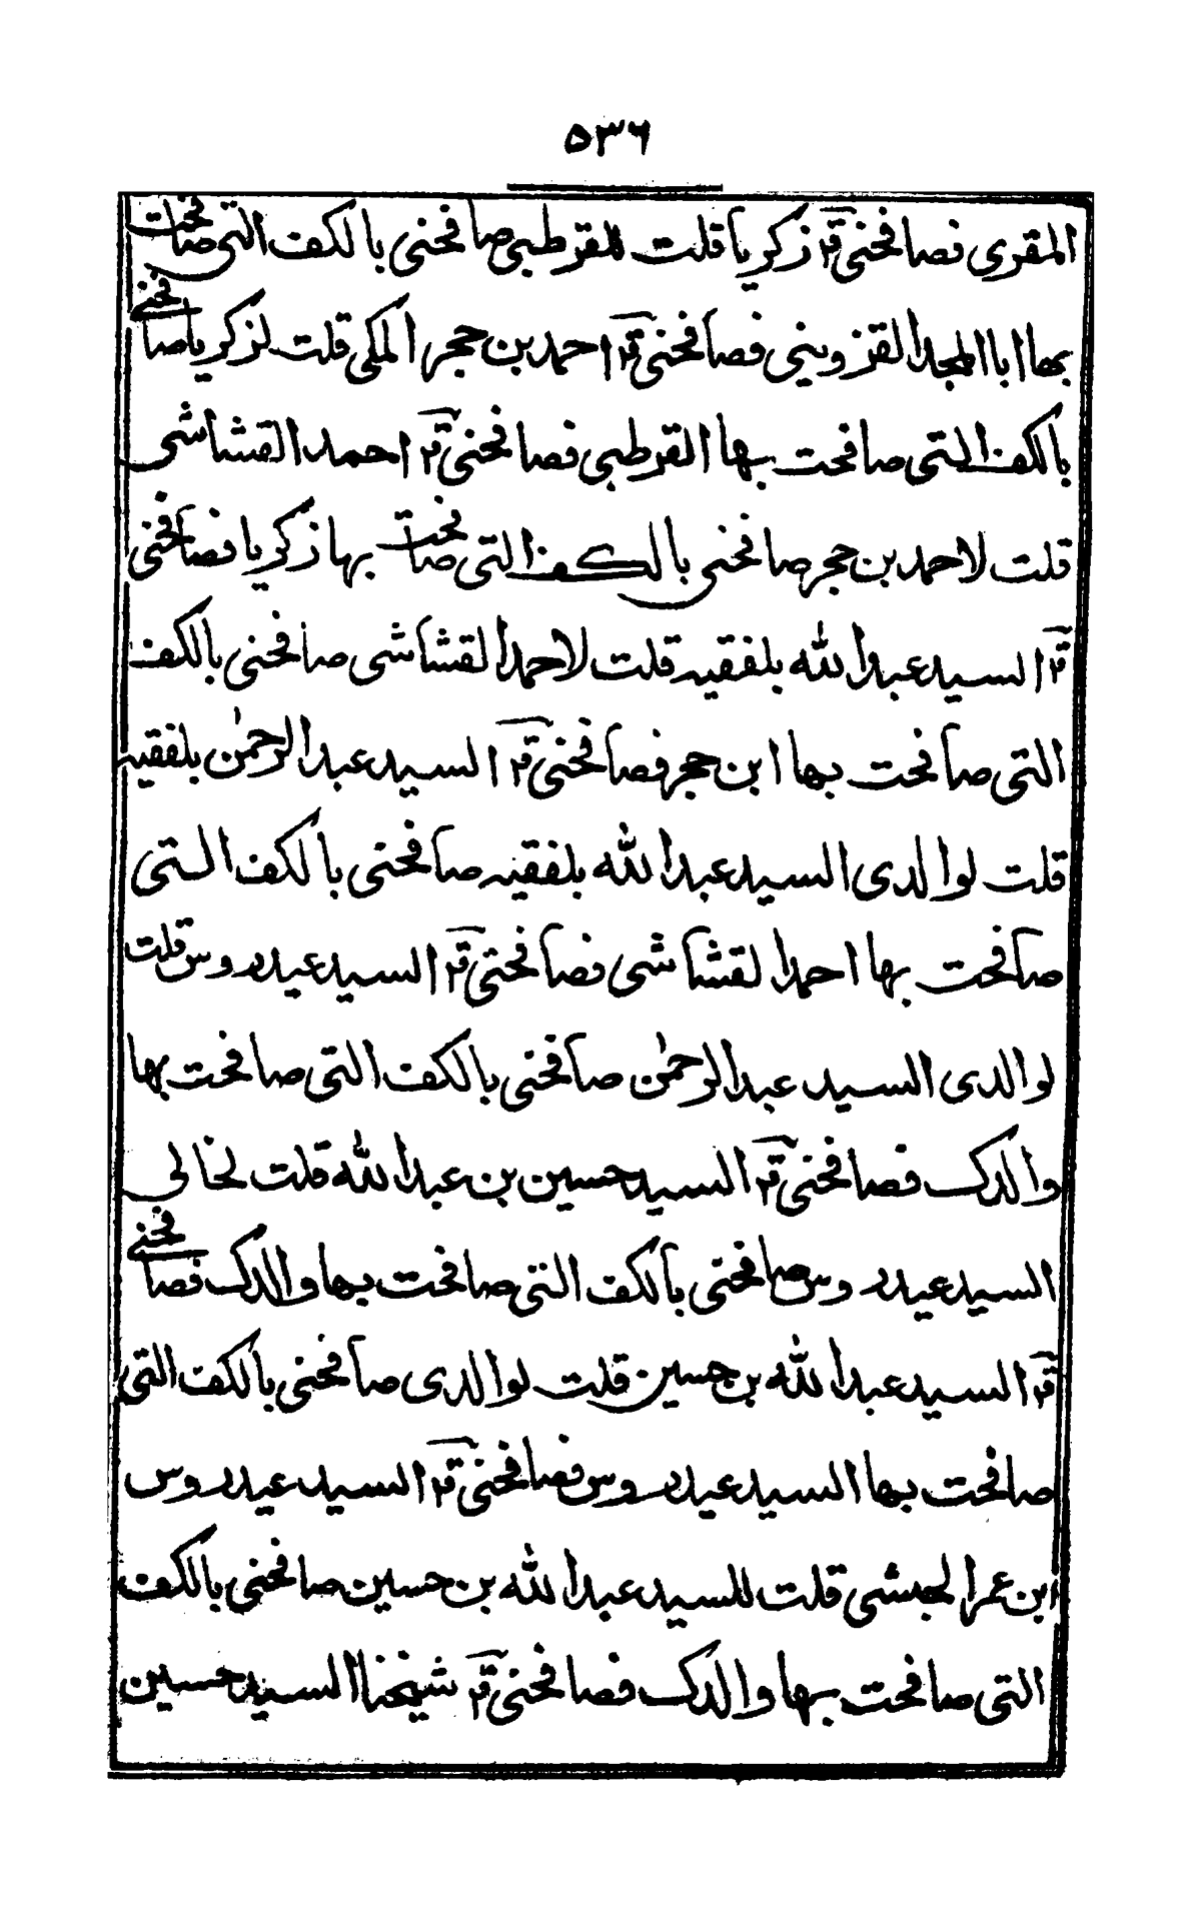 ٥٣٦
المقرى فصافحنى قال زكريا قلت للقرطبى صافحنى بالكف التى صافحت
بها ابا المجد القزوينى فصافحنى قال احمد بن حجر المكى قلت لزكريا صافحنى
بالكف التى صافحت بها القرطبى فصافحنى قال احمد القشاشى
قلت لاحمد بن حجر صافحنى بالكف التى صافحت بها زكريا فصافحنى
قال السيد عبد الله بلفقيه قلت لاحمد القشاشى صافحنى بالكف
التى صافحت بها ابن حجر فصافحنى قال السيد عبد الرحمٰن بلفقيه
قلت لوالدى السيد عبد الله بلفقيه صافحنى بالكف التى
صافحت بها احمد القشاشى فصافحنى قال السيد عيدروس قلت
لوالدى السيد عبد الرحمٰن صافحنى بالكف التى صافحت بها
والدك فصافحنى قال السيد حسين بن عبد الله قلت لخالى
السيد عيدروس صافحنى بالكف التى صافحت بها والدك فصافحنى
قال السيد عبد الله بن حسين قلت لوالدى صافحنى بالكف التى
صافحت بها السيد عيدروس فصافحنى قال السيد عيدروس
ابن عمر الحبشى قلت للسيد عبد الله بن حسين صافحنى بالكف
التى صافحت بها والدك فصافحنى قال شيخنا السيد حسين